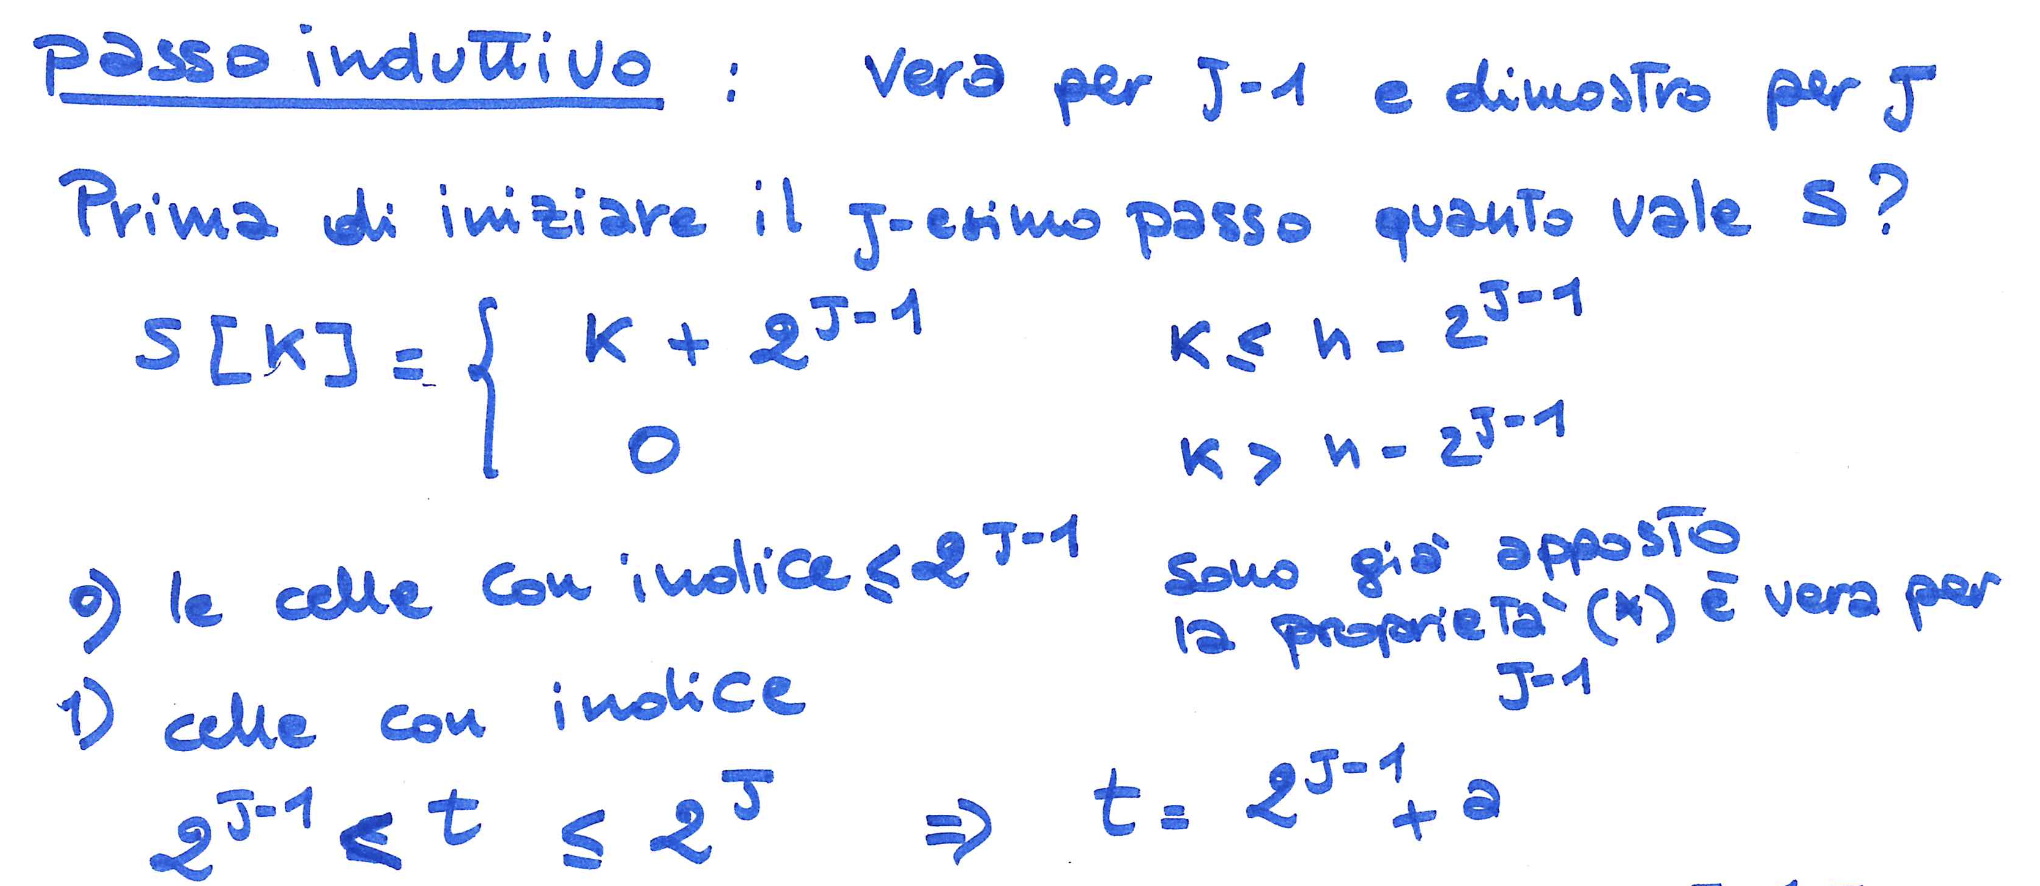 passo induttivo : vera per J-1 e dimostro per J
Prima di iniziare il J-esimo passo quanto vale S?
S[K] = { K + 2^{J-1} K ≤ n - 2^{J-1}
0 K > n - 2^{J-1}
0) le celle con indice ≤ 2^{J-1} sono già apposto
la proprietà (*) è vera per
J-1
1) celle con indice
2^{J-1} < t ≤ 2^J ⇒ t = 2^{J-1} + a